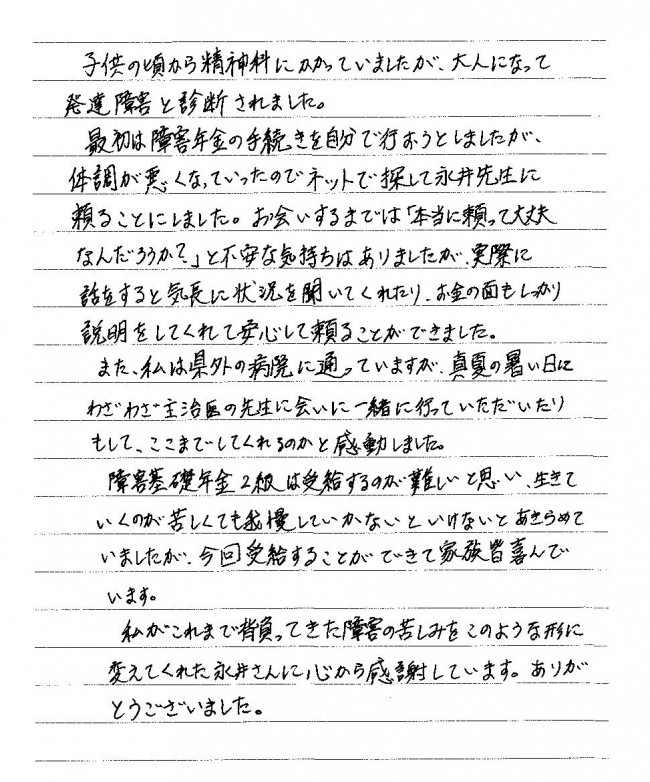 子供の頃から精神科にかかっていましたが、大人になって
発達障害と診断されました。
最初は障害年金の手続きを自分で行おうとしましたが、
体調が悪くなっていったのでネットで探して永井先生に
頼ることにしました。お会いするまでは「本当に頼って大丈夫
なんだろうか？」と不安な気持ちはありましたが、実際に
話をすると気長に状況を聞いてくれたり、お金の面もしっかり
説明をしてくれて安心して頼ることができました。
また、私は県外の病院に通っていますが、真夏の暑い日に
わざわざ主治医の先生に会いに一緒に行っていただいたり
もして、ここまでしてくれるのかと感動しました。
障害基礎年金2級は受給するのが難しいと思い、生きて
いくのが苦しくても我慢していかないといけないとあきらめて
いましたが、今回受給することができて家族皆喜んで
います。
私がこれまで背負ってきた障害の苦しみをこのような形に
変えてくれた永井さんに心から感謝しています。ありが
とうございました。